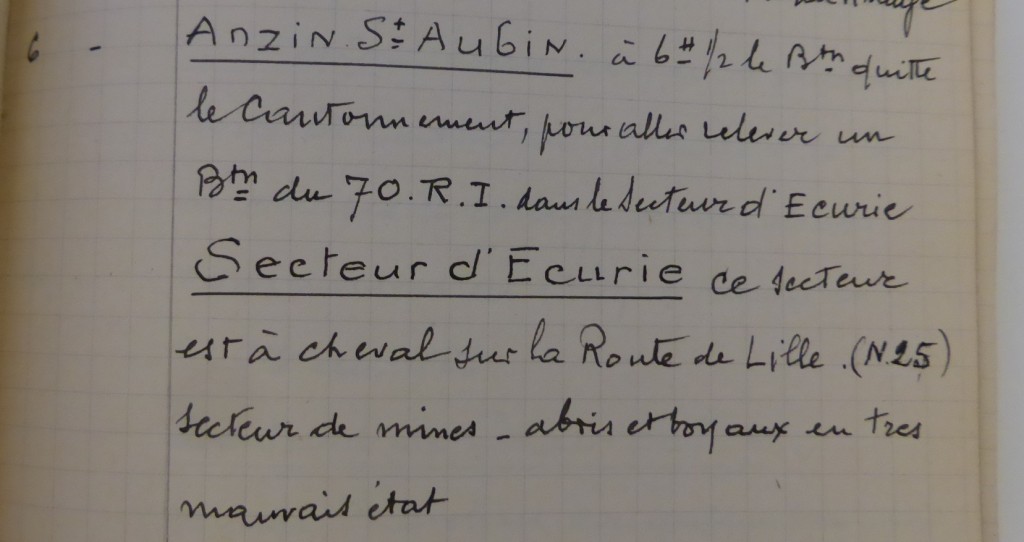 6 - Anzin St Aubin. à 6H 1/2 le Btn quitte
le Cantonnement, pour aller relever un
Btn du 70. R. I. dans le secteur d'Ecurie
Secteur d'Ecurie ce secteur
est à cheval sur la Route de Lille. (N.25)
secteur de mines - abris et boyaux en tres
mauvais état